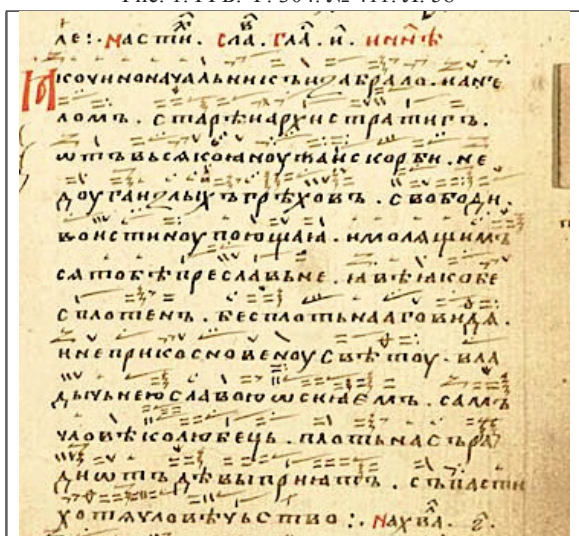 Рис. 1. РГБ. Ф. 304. № 411. Л. 38
ле:. Настн҃. сла҃. гла҃. и҃. ннн҃ѣ
Ꙗко чиноначальникъ и забрало. и анг҃е
ломъ. старѣи архистратигъ.
ѡтъ вьсѧкоꙗ ноужаи скорби. не
доуга и злыхъ грѣховъ. свободи.
воистиноу поющаꙗ. и молѧщимъ
сѧ тобѣ преславьне. ꙗвѣ ꙗко бе
сплотенъ. бесплотьнааго видѧ.
и неприкосновеноу свѣтоу. вла
дычьнею славою ѡсиꙗемъ. самъ
человѣколюбець. плоть насъ ра
ди ѡтъ дѣвы приꙗтъ. съпасти
хотѧ человѣчьство:. На хва҃. г҃.